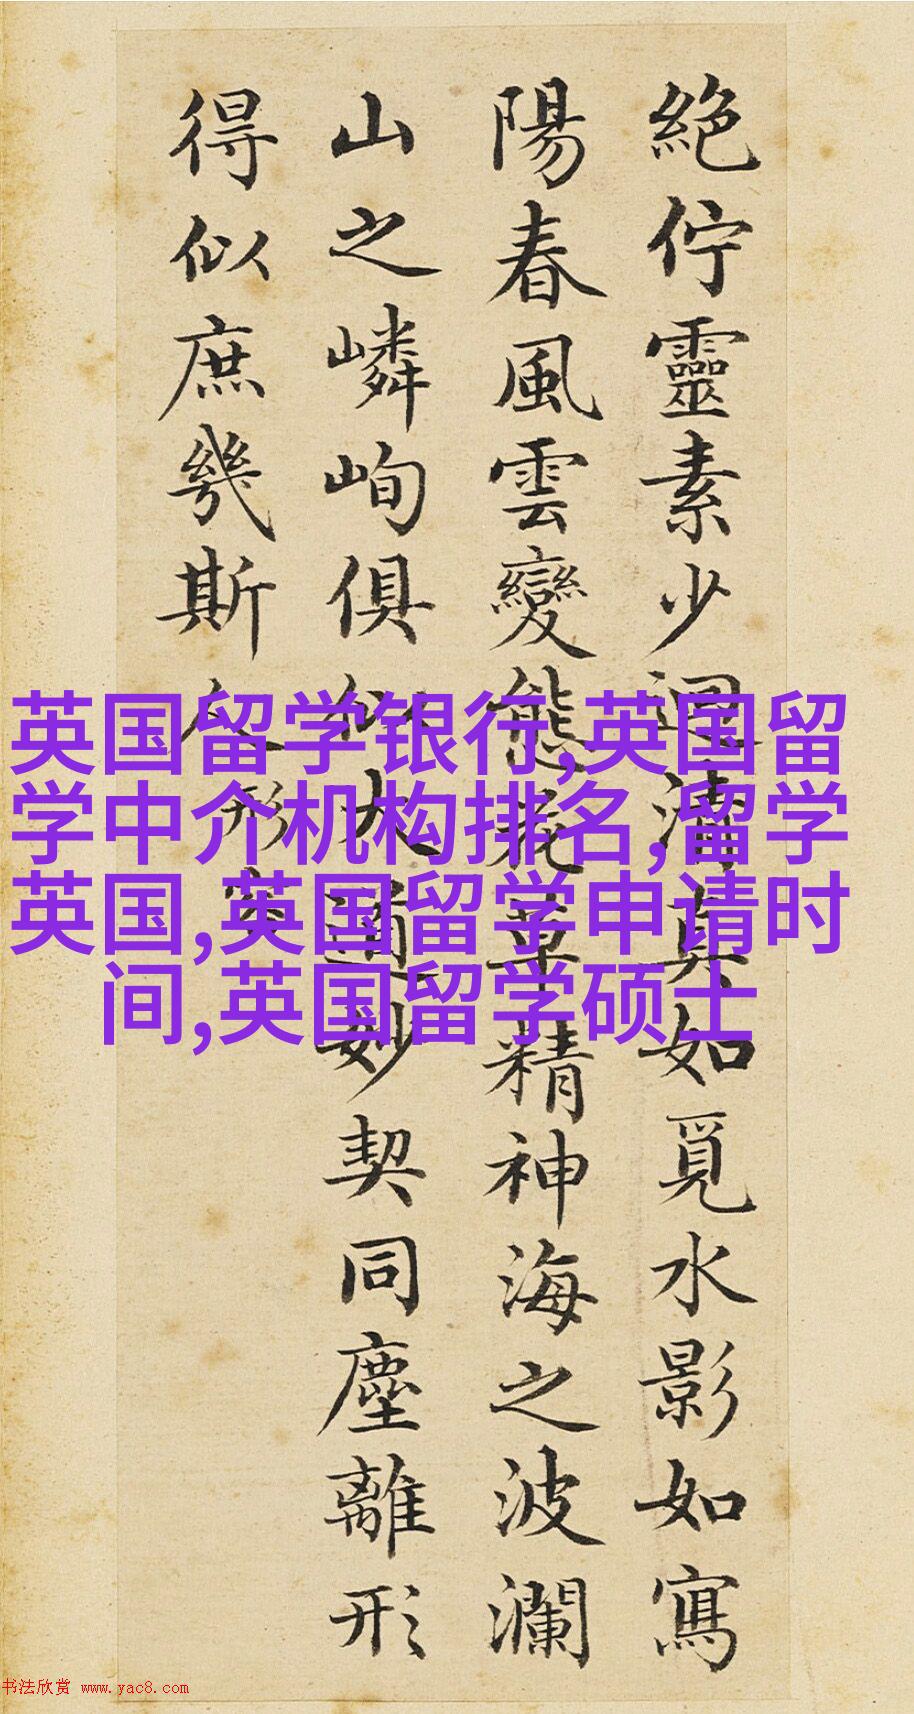 絕佇靈素少迴清真如覓水影如寫
陽春風雲變態花草精神海之波瀾
山之嶙峋俱似大道妙契同塵離形
得似庶幾斯人
形容
英国留学银行,英国留
学中介机构排名,留学
英国,英国留学申请时
间,英国留学硕士
书法欣赏 www.yac8.com